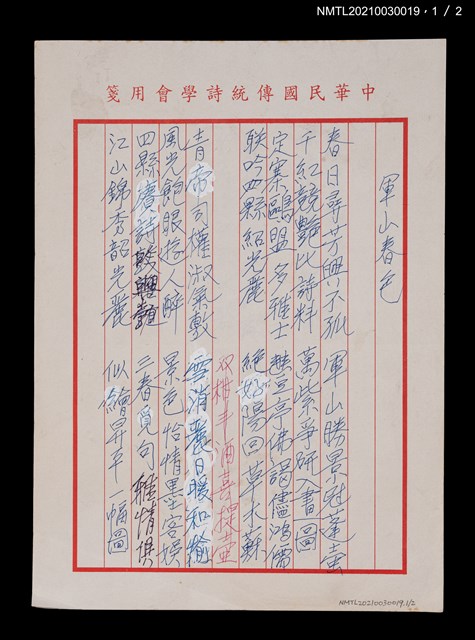 NMTL20210030019，1／2
中華民國傳統詩學會用箋
軍山春色
春日尋芳興不孤　軍山勝景冠蓬壺
千紅競艷比詩料　萬紫爭研入書圖
定寨鷗盟多雅士　豐亭佛謁儘鴻儒
联吟四縣紹光麗　絕好陽回草木蘇
双柑斗酒喜提壺
青帝司權淑氣敷　雪消麗日暖和
風光飽眼遊人醉　景色怡情墨客娛
四縣賽詩　三春覓句雅情俱
江山錦秀韶光麗　似繪昇平一幅圖
NMTL20210030019.1/2